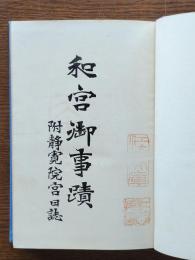 和宮御事蹟
附静寛院宮日誌